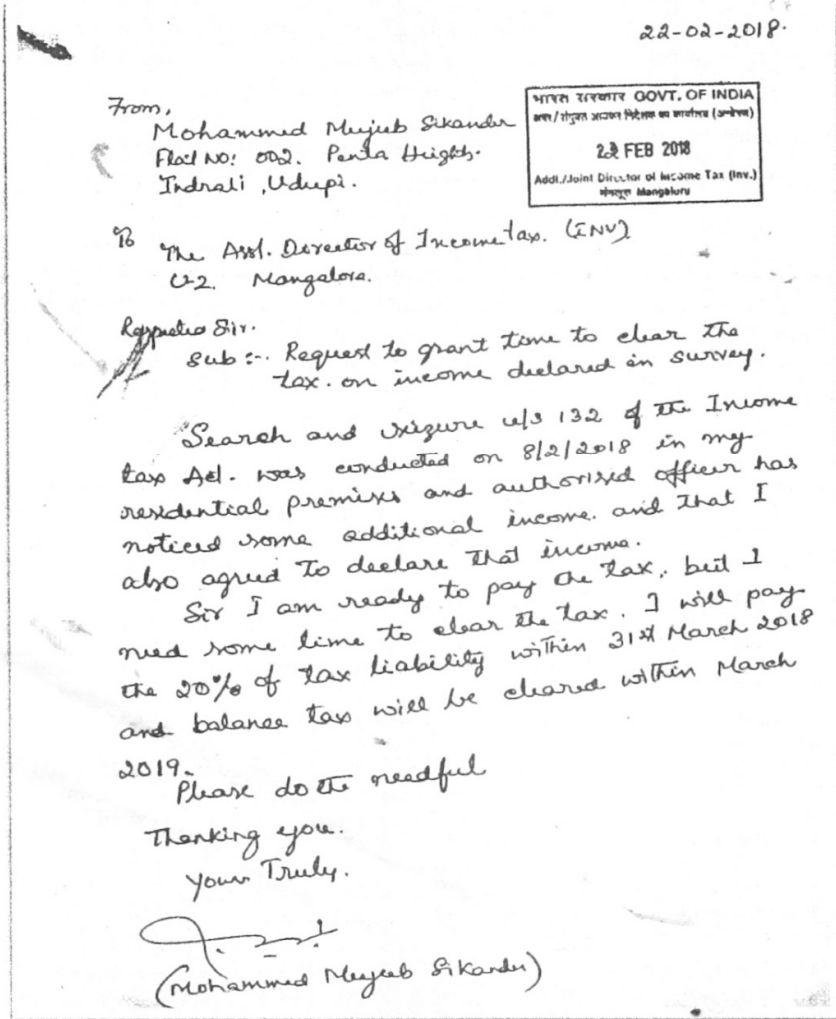 22-02-2018.
From,
Mohammed Mujeeb Sikander
Flat No: 002. Penta Heights.
Indrali, Udupi.
भारत सरकार GOVT. OF INDIA
अपर/संयुक्त आयकर निदेशक का कार्यालय (अन्वेषण)
FEB 2018
Addl./Joint Director of Income Tax (Inv.)
मंगलूरु Mangaluru
To
The Asst. Director of Income tax. (INV)
U-2. Mangalore.
Respected Sir.
Sub :-. Request to grant time to clear the
tax. on income declared in survey.
Search and seizure u/s 132 of the Income
tax Act. was conducted on 8/2/2018 in my
residential premises and authorised officer has
noticed some additional income. and that I
also agreed to declare that income.
Sir I am ready to pay the tax, but I
need some time to clear the tax. I will pay
the 20% of tax liability within 31st March 2018
and balance tax will be cleared within March
2019.
Please do the needful
Thanking you.
Your Truly.
(Mohammed Mujeeb Sikander)